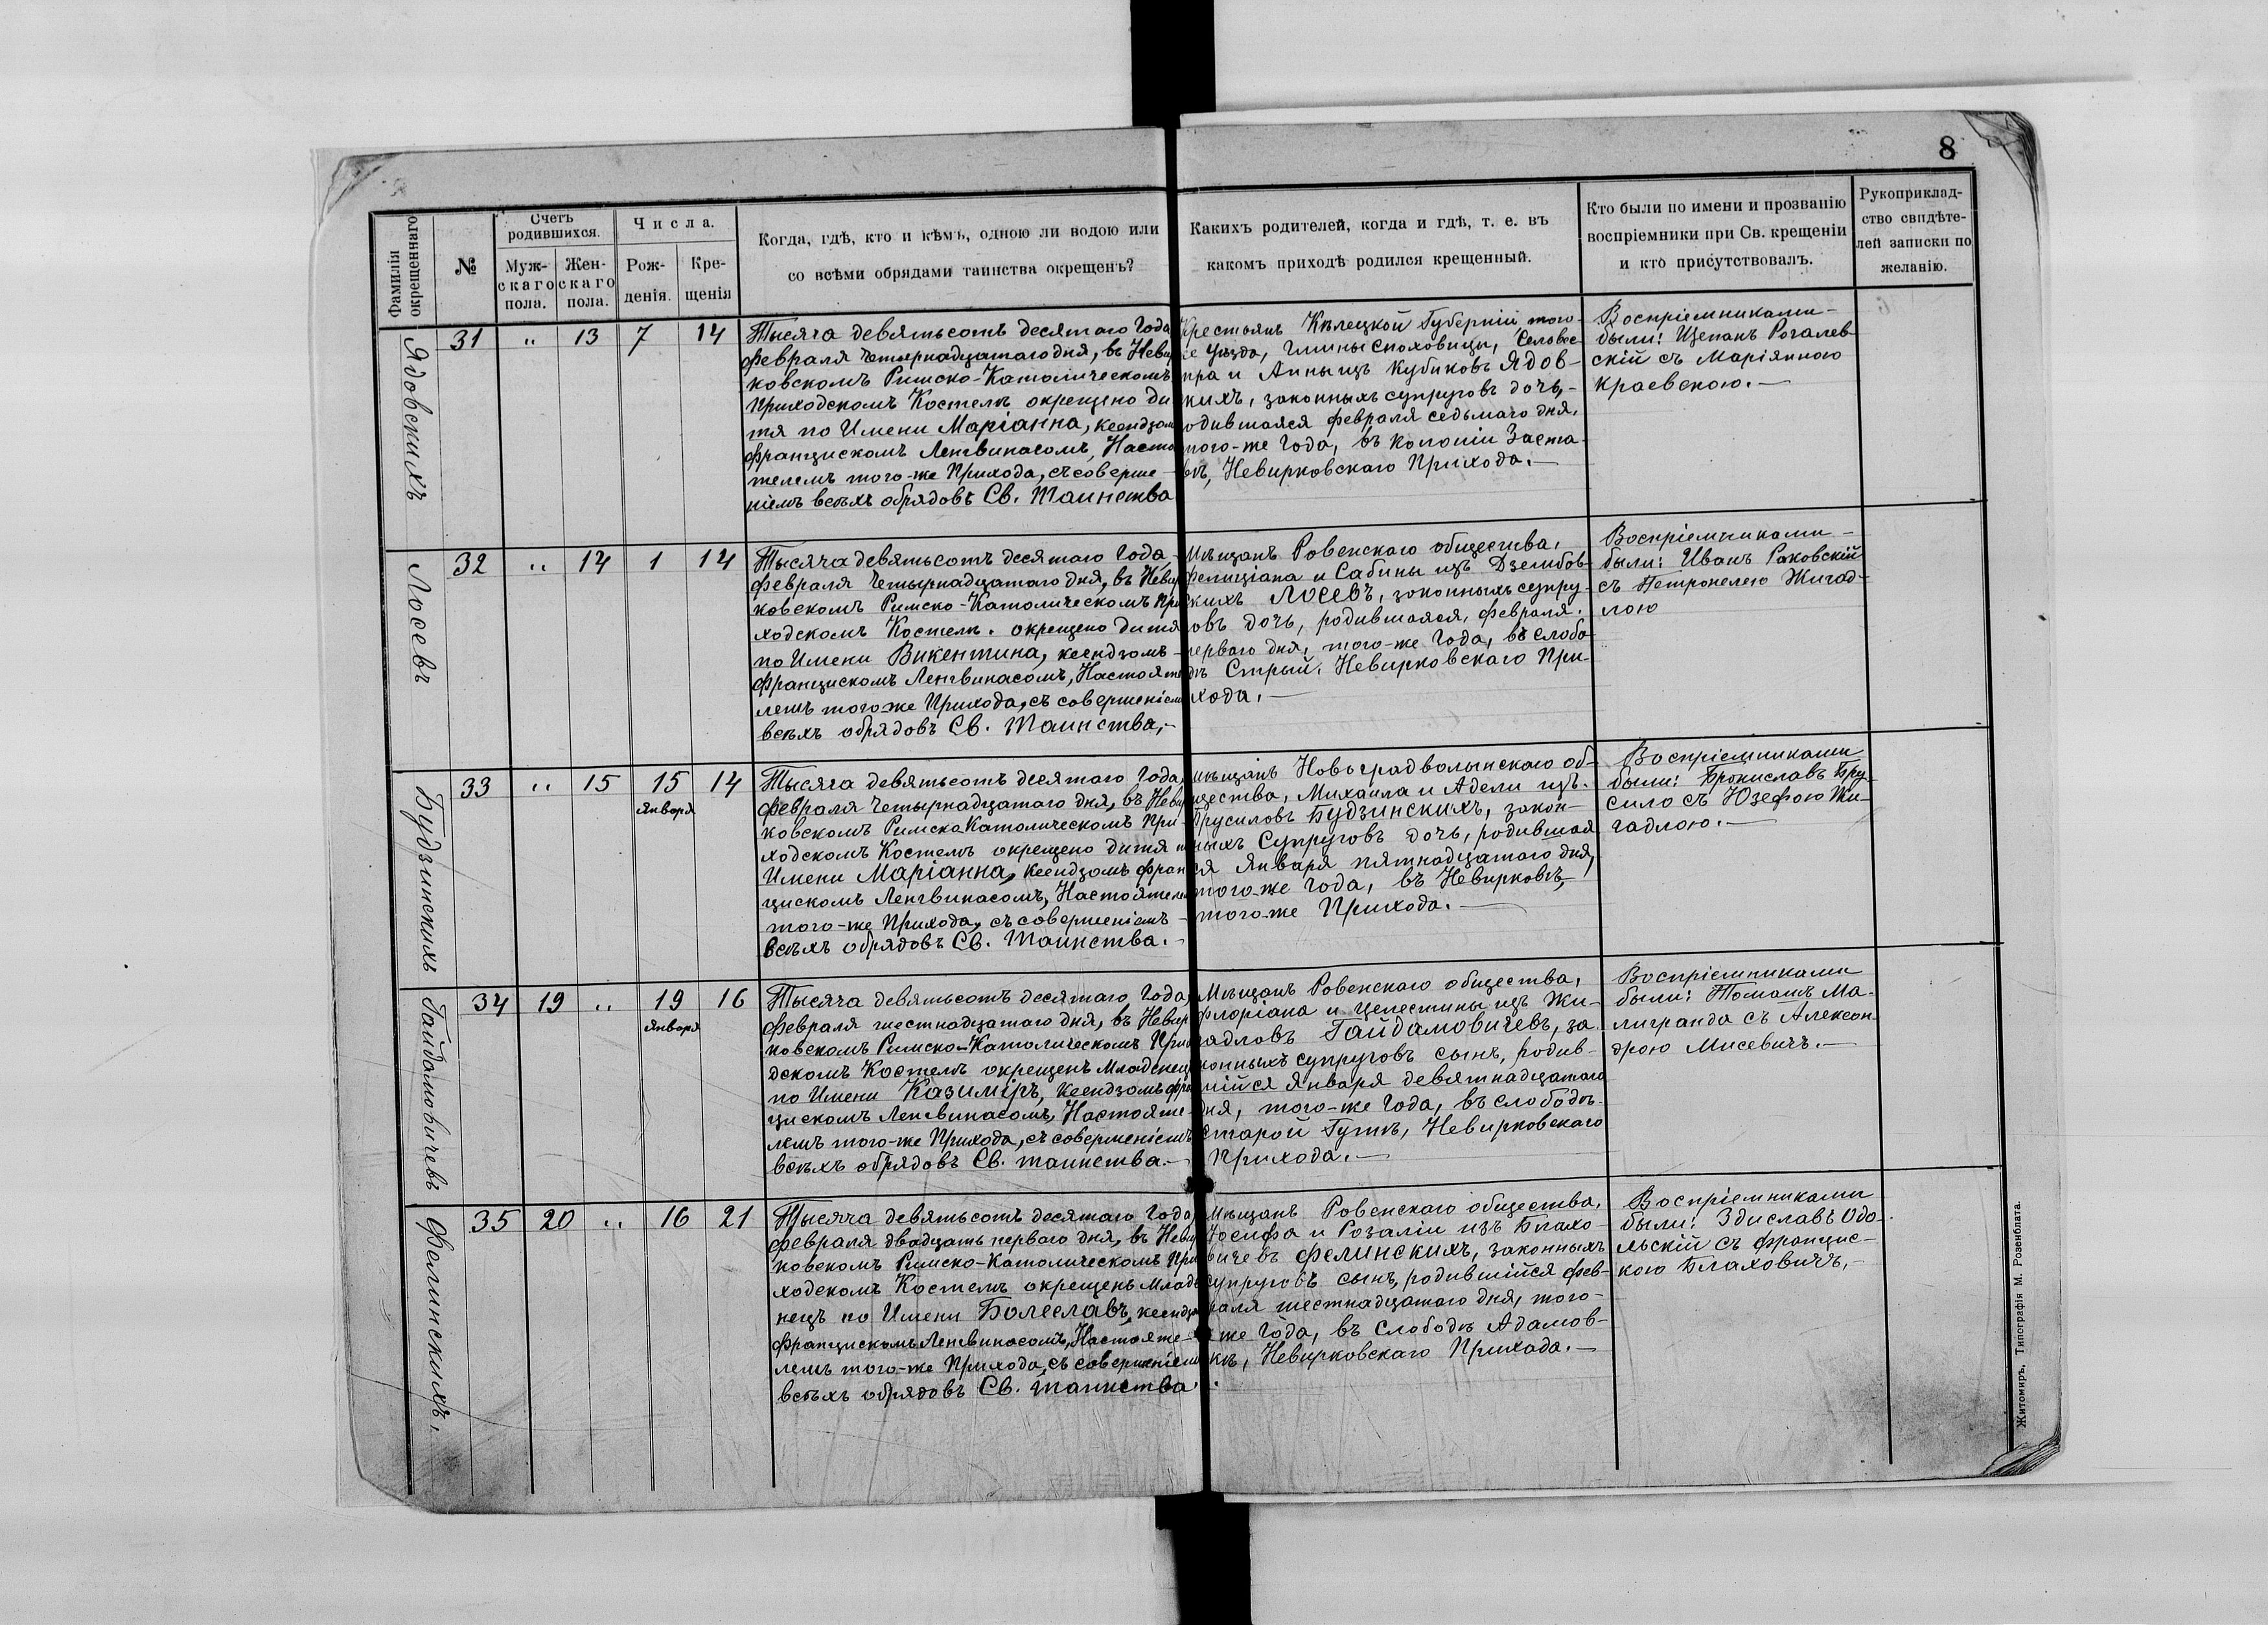 8
Фамилія окрещеннаго
№
Счетъ родившихся.
Муж-скаго пола.
Жен-скаго пола.
Числа.
Рож-денія.
Кре-щенія
Когда, гдѣ, кто и кѣмъ, одною ли водою или
со всѣми обрядами таинства окрещенъ?
Какихъ родителей, когда и гдѣ, т. е. въ
какомъ приходѣ родился крещенный.
Кто были по имени и прозванію
воспріемники при Св. крещеніи
и кто присутствовалъ.
Рукоприклад-
ство свидѣте-
лей записки по
желанію.
Ядовскихъ
31 " 13 7 14
Тысяча девятьсотъ десятаго Года
февраля четырнадцатаго дня, въ Невир
ковскомъ Римско-Католическомъ
Приходскомъ Костелѣ окрещено ди
тя по Имени Маріанна, ксендзом
Францискомъ Ленгвинасомъ, Насто
телемъ того-же Прихода, съ соверше-
ніемъ всѣхъ обрядовъ Св. Таинства
Крестьянъ Кѣлецкой Губерніи, того-
же Уѣзда, Гмины Сноховицы,
и Анны изъ Кубиковъ Ядов-
кихъ, законныхъ супруговъ дочь,-
одившаяся февраля седьмаго дня,
того-же Года, въ колоніи Заста-
вѣ, Невирковскаго Прихода.-
Воспріемниками-
были: Щепанъ Рогалев-
скій съ Маріянною
Краевскою.-
Лосевъ
32 " 14 1 14
Тысяча девятьсотъ десятаго Года-
февраля Четырнадцатаго дня, въ Невир
ковскомъ Римско-Католическомъ При
ходскомъ Костелѣ. окрещено дитя
по Имени Викентина, ксендзомъ-
Францискомъ Ленгвинасомъ, Настояте
лемъ того же Прихода, съ совершеніем
всѣхъ обрядовъ Св. Таинства,-
Мѣщанъ Ровенскаго общества,
Фелиціана и Сабины изъ Дзембов-
скихъ Лосевъ, законныхъ супру-
овъ дочь, родившаяся, февраля.
перваго дня, того-же Года, въ слобо-
дѣ Стрый, Невирковскаго При-
хода.-
Воспріемниками-
были: Иванъ Раковскій
съ Петронелею Жигад-
лою
Будзинскихъ
33 " 15 15 14
января
Тысяча девятьсотъ десятаго Года,
февраля Четырнадцатаго дня, въ Невир
ковскомъ Римско Католическомъ При-
ходскомъ Костелѣ окрещено дитя п
Имени Маріанна, ксендзомъ Фран
цискомъ Ленгвинасомъ, Настоятелем
того-же Прихода, съ совершеніемъ-
всѣхъ обрядовъ Св. Таинства.-
мѣщанъ Новоградволынскаго об-
щества, Михаила и Адели изъ.
Брусиловъ Будзинскихъ, закон-
ныхъ Супруговъ дочь, родившая
ся Января пятнадцатаго дня,
того-же Года, въ Невирковѣ,
того-же Прихода.-
Воспріемниками
были: Брониславъ Бру-
сило съ Юзефою Жи-
гадлою.-
Гайдамовичевъ
34 19 " 19 16
января
Тысяча девятьсотъ десятаго Года,
февраля шестнадцатаго дня, въ Невир
ковскомъ Римско-Католическомъ Прих
дскомъ Костелѣ окрещенъ Младенец
по Имени Казиміръ, Ксендзомъ Фра
цискомъ Ленгвинасомъ, Настояте-
лемъ того-же Прихода, съ совершеніемъ
всѣхъ обрядовъ Св. таинства.-
Мѣщанъ Ровенскаго общества,
Флоріана и Целестины изъ Жи-
гадловъ Гайдамовичевъ, за
конныхъ супруговъ сынъ, родив-
шійся Января девятнадцатаго
дня, того-же Года, въ слободѣ-
Старой Гутѣ, Невирковскаго
Прихода.-
Воспріемниками
были: Томашъ Ма-
лигранда съ Алексан-
дрою Мисевичъ.-
Фелинскихъ,
35 20 " 16 21
Тысяча девятьсотъ десятаго Года
февраля двадцать перваго дня, въ Невир
ковскомъ Римско-Католическомъ При
ходскомъ Костелѣ окрещенъ Младе
нецъ по Имени Болеславъ, ксендзо
Францискомъ Ленгвинасомъ, Настояте-
лемъ того-же Прихода, съ совершеніем
всѣхъ обрядовъ Св. таинства.
Мѣщанъ Ровенскаго общества,
Іосифа и Розаліи изъ Блахо-
вичевъ Фелинскихъ, законныхъ
супруговъ сынъ, родившійся фев-
раля шестнадцатаго дня, того-
же Года, въ Слободѣ Адамов-
кѣ, Невирковскаго Прихода.-
Воспріемниками
были: Здиславъ Одо-
льскій съ Францис-
кою Блаховичъ,-
Житомиръ, Типографія М. Розенблата.